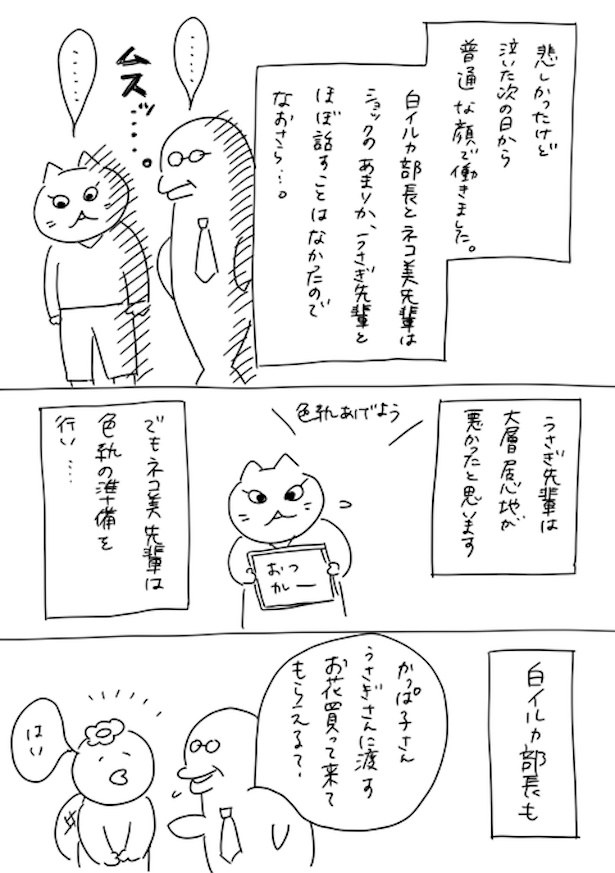 悲しかったけど
泣いた次の日から
普通な顔で働きました。
白イルカ部長とネコ美先輩は
ショックのあまりか、うさぎ先輩と
ほぼ話すことはなかったので
なおさら…。
……
ムスッ……。
……
うさぎ先輩は
大層居心地が
悪かったと思います
色紙あげよう
おつ
カレー
でもネコ美先輩は
色紙の準備を
行い……
白イルカ部長も
かっぱ子さん
うさぎさんに渡す
お花買って来て
もらえる?
はい